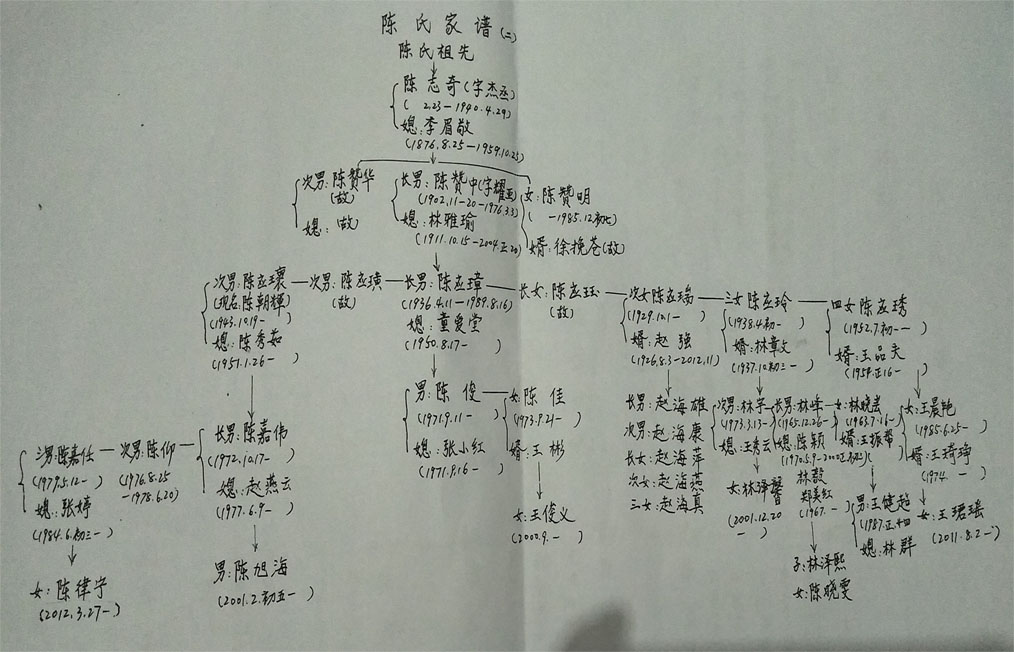 陈氏家谱(二)
陈氏祖先
陈志奇(字杰丞)
( 2.23-1940.4.29)
媳:李眉敬
(1876.8.25-1959.10.25)
次男:陈贊华
(故)
媳: (故)
长男:陈贊中(字耀亚)
(1902.11-20-1976.3.3)
媳:林雅瑜
(1911.10.15-2004.正20)
女:陈贊明
( -1985.12.初七)
婿:徐挽苍(故)
次男:陈应瓖
(现名:陈朝輝)
(1943.10.19- )
媳:陈秀茹
(1951.1.26- )
次男:陈应璜
(故)
长男:陈应璋
(1936.4.11-1989.8.16)
媳:童爱堂
(1950.8.17- )
长女:陈应珏
(故)
次女陈应瑞
(1929.12.1- )
婿:赵强
(1926.8.3-2012.11)
三女陈应玲
(1938.4.初- )
婿:林章文
(1937.10.初三- )
四女陈应琇
(1952.7.初一- )
婿:王品夫
(1954.正16- )
男:陈俊
(1971.9.11- )
媳:张小红
(1971.9.16- )
女:陈佳
(1973.9.21- )
婿:王彬
女:王俊义
(2000.9.- )
长男:赵海雄
次男:赵海康
长女:赵海萍
次女:赵海燕
三女:赵海真
次男:林宇
(1973.3.13- )
媳:王秀云
女:林泽馨
(2001.12.20
- )
长男:林峰
(1965.12.26- )
媳:陈颖
(1970.5.9-2000.正初二)
林毅
郑美红
(1967. - )
子:林泽熙
女:陈晓雯
女:林晓芸
(1963.7.16- )
婿:王振蒂
( )
男:王健超
(1987.正.十四
媳:林群
女:王晨艳
(1985.6.25- )
婿:王琦琤
(1974. - )
女:王珺瑶
(2011.8.2- )
三男:陈嘉任
(1979.5.12- )
媳:张婷
(1984.6.初三- )
女:陈律宇
(2012.3.27- )
次男:陈仰
(1976.8.25
-1978.6.20)
长男:陈嘉伟
(1972.10.17- )
媳:赵燕云
(1977.6.9- )
男:陈旭海
(2001.2.初五- )